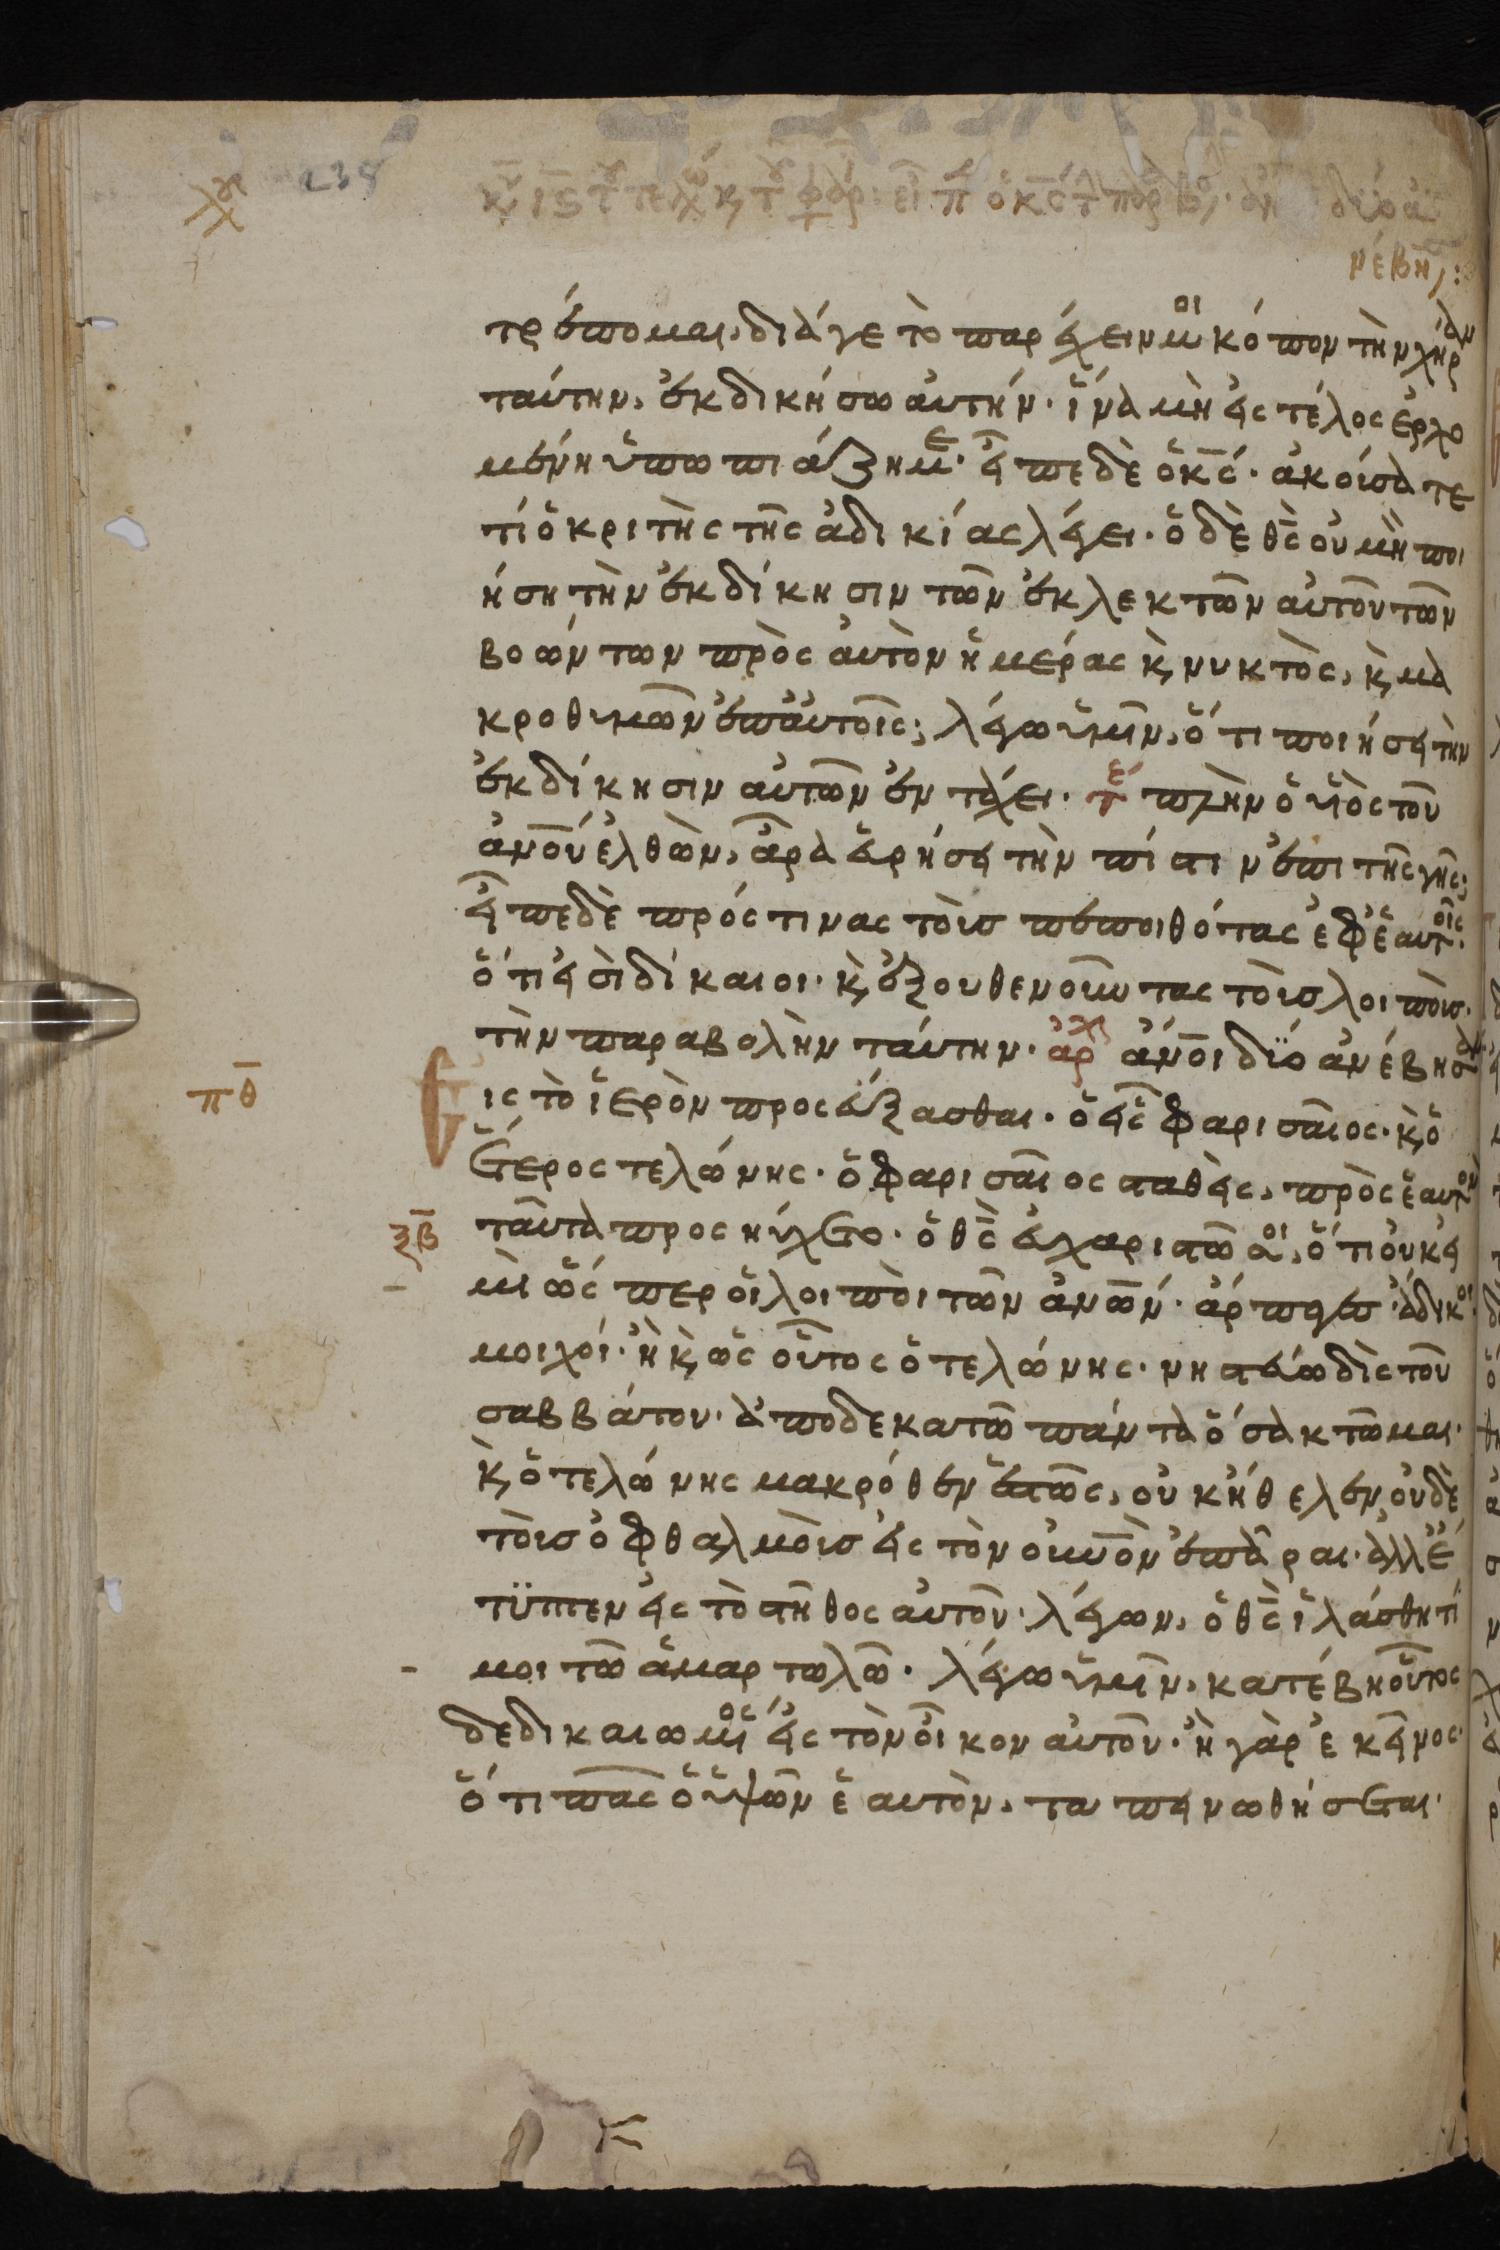 238
μέβη,:
τρέπομαι, διά γε τὸ παρέχειν μοι κόπον τὴν χήραν
ταύτην, ἐκδικήσω αὐτήν· ἵνα μὴ εἰς τέλος ἐρχο
μένη ὑπωπιάζη με· εἶπε δὲ ὁ κς· ἀκούσατε
τί ὁ κριτὴς τῆς ἀδικίας λέγει· ὁ δὲ θς οὐ μὴ ποι
ήση τὴν ἐκδίκησιν τῶν ἐκλεκτῶν αὐτοῦ τῶν
βοώντων πρὸς αὐτὸν ἡμέρας κ νυκτὸς, κ μα
κροθυμῶν ἐπ αὐτοῖς; λέγω ὑμῖν, ὅτι ποιήσει τὴν
ἐκδίκησιν αὐτῶν ἐν τάχει· τε πλὴν ὁ υἱὸς τοῦ
ἀνου ἐλθὼν, ἆρα εὑρήσει τὴν πίστιν ἐπι τῆς γῆς;
εἶπε δὲ πρός τινας τοὺς πεποιθότας ἐφ ἑαυτοῖς·
ὅτι εἰσὶ δίκαιοι· κ ἐξουθενοῦντας τοὺς λοιπούς·
τὴν παραβολὴν ταύτην· ἀρχ ἀνοι δϊο ἀνέβησαν
πθ
εις τὸ ἱερὸν προσεύξασθαι· ὁ εἷς φαρισαῖος· κ ὁ
ἕτερος τελώνης· ὁ φαρισαῖος σταθεὶς, πρὸς ἑαυτὸν
ξβ
ταῦτα προσηύχετο· ὁ θς εὐχαριστῶ σοι, ὅτι οὐκ εἰ
μὶ ὥσπερ οἱ λοιποὶ τῶν ἀνων· ἅρπαγες· ἄδικοι·
μοιχοί· ἢ κ ὡς οὗτος ὁ τελώνης· νηστεύω δὶς τοῦ
σαββάτου· ἀποδεκατῶ πάντα ὅσα κτῶμαι·
κ ὁ τελώνης μακρόθεν ἑστὼς, οὐκ ἤθελεν οὐδὲ
τοὺς ὀφθαλμοὺς εἰς τὸν οὐνὸν ἐπᾶραι· ἀλλ ἔ
τϋπτεν εἰς τὸ στῆθος αὐτοῦ· λέγων, ὁ θς ἱλάσθητί
μοι τῶ ἁμαρτωλῶ· λέγω ὑμῖν, κατέβη οὗτος
δεδικαιωμένος εἰς τὸν οἶκον αὐτοῦ· ἢ γὰρ ἐκεῖνος·
ὅτι πᾶς ὁ ὑψῶν ἑαυτὸν, ταπεινωθήσεται·